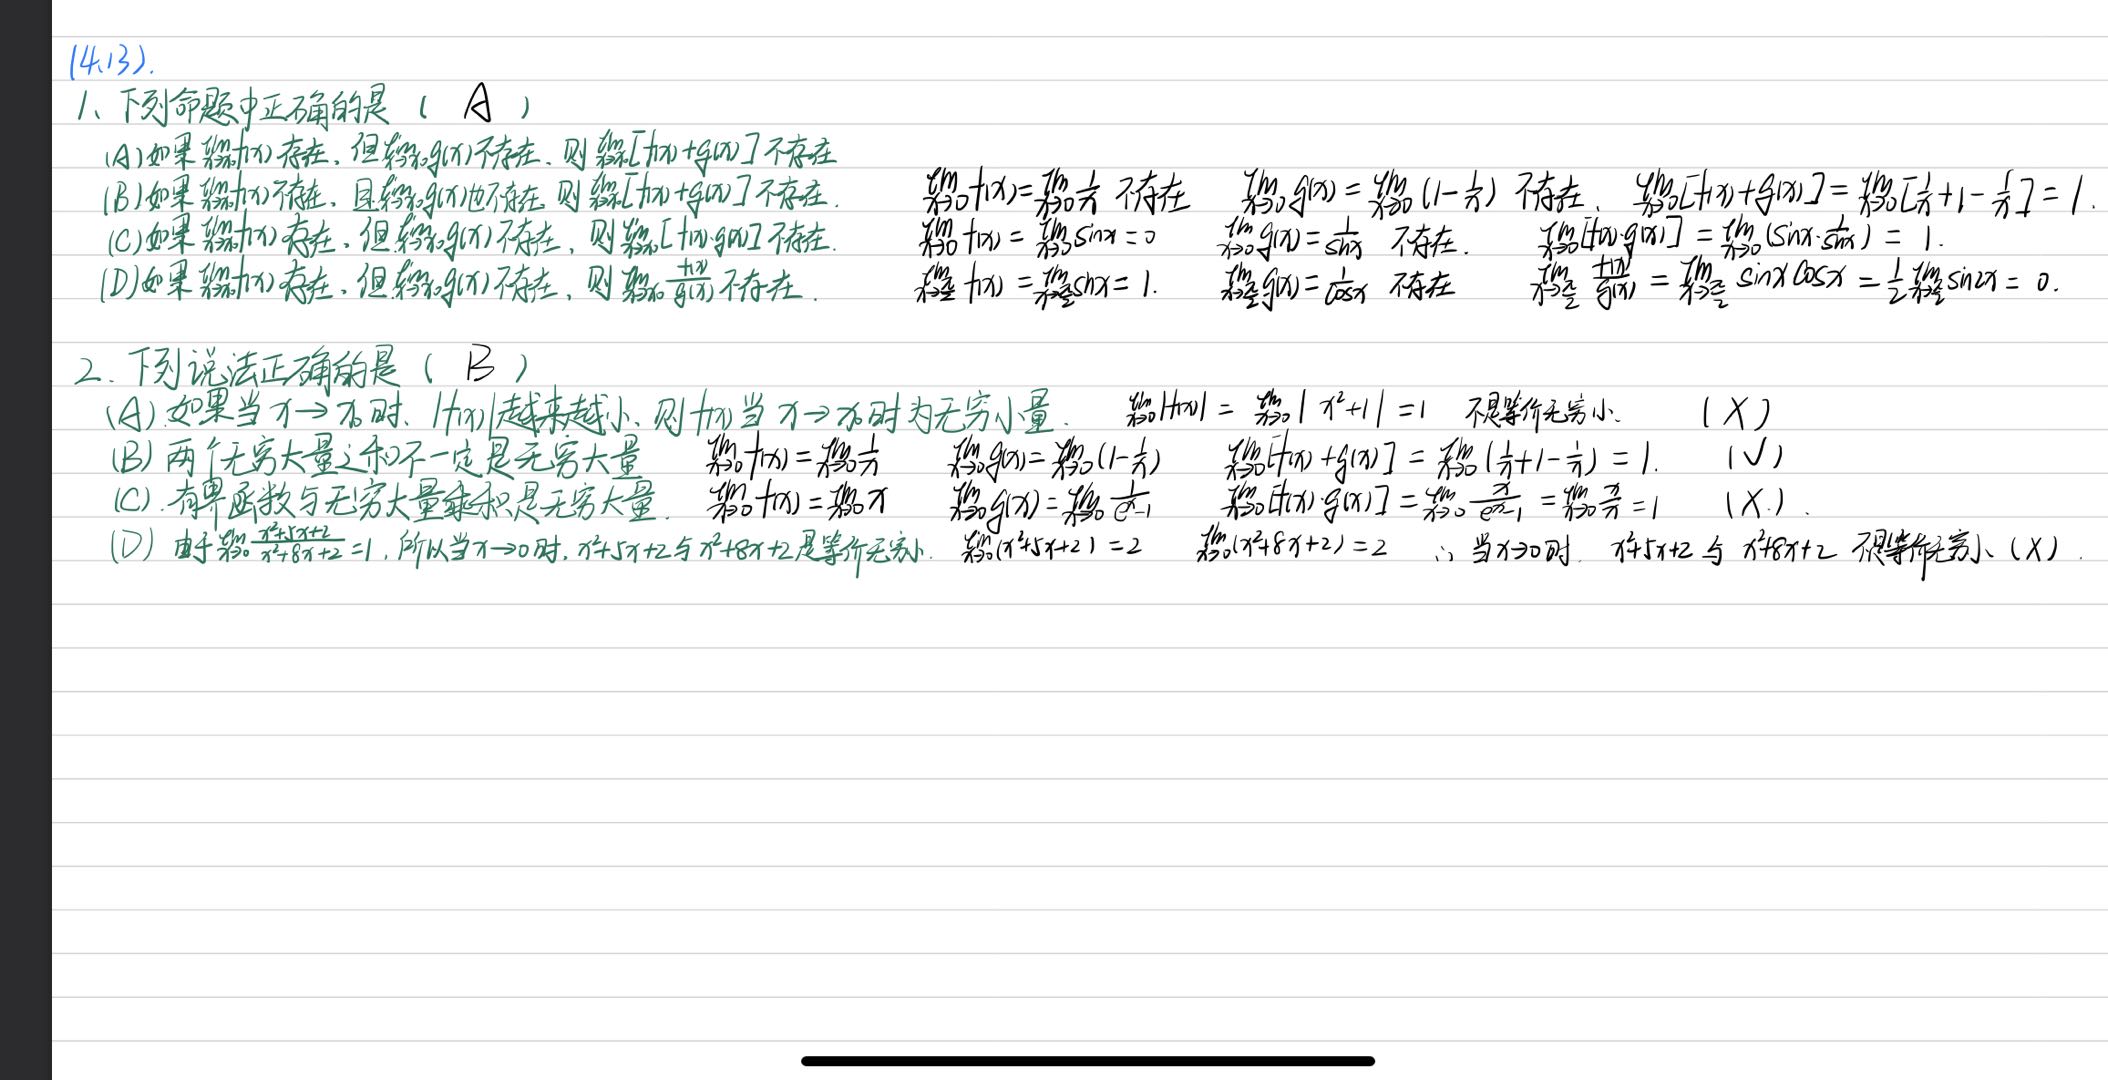 (4.13).
1、下列命题中正确的是 ( A )
(A)如果 lim x→x₀ f(x) 存在, 但 lim x→x₀ g(x) 不存在, 则 lim x→x₀ [f(x)+g(x)] 不存在
(B)如果 lim x→x₀ f(x) 不存在, 且 lim x→x₀ g(x) 也不存在, 则 lim x→x₀ [f(x)+g(x)] 不存在. lim x→0 f(x) = lim x→0 1/x 不存在 lim x→0 g(x) = lim x→0 (1-1/x) 不存在. lim x→0 [f(x)+g(x)] = lim x→0 [1/x+1-1/x] = 1.
(C)如果 lim x→x₀ f(x) 存在, 但 lim x→x₀ g(x) 不存在, 则 lim x→x₀ [f(x)·g(x)] 不存在. lim x→0 f(x) = lim x→0 sinx = 0 lim x→0 g(x) = 1/sinx 不存在. lim x→0 [f(x)·g(x)] = lim x→0 (sinx·1/sinx) = 1.
(D)如果 lim x→x₀ f(x) 存在, 但 lim x→x₀ g(x) 不存在, 则 lim x→x₀ f(x)/g(x) 不存在. lim x→π/2 f(x) = lim x→π/2 sinx = 1. lim x→π/2 g(x) = 1/cosx 不存在 lim x→π/2 f(x)/g(x) = lim x→π/2 sinx cosx = 1/2 lim x→π/2 sin2x = 0.
2. 下列说法正确的是 ( B )
(A).如果当 x→x₀ 时, |f(x)|越来越小, 则 f(x) 当 x→x₀ 时为无穷小量. lim x→0 |f(x)| = lim x→0 |x²+1| = 1 不是等价无穷小. (X)
(B) 两个无穷大量之和不一定是无穷大量 lim x→0 f(x) = lim x→0 1/x lim x→0 g(x) = lim x→0 (1-1/x) lim x→0 [f(x)+g(x)] = lim x→0 (1/x+1-1/x) = 1. (√)
(C).有界函数与无穷大量乘积是无穷大量. lim x→0 f(x) = lim x→0 x lim x→0 g(x) = lim x→0 1/(eˣ-1) lim x→0 [f(x)·g(x)] = lim x→0 x/(eˣ-1) = lim x→0 x/x = 1 (X.).
(D) 由于 lim x→0 (x²+5x+2)/(x²+8x+2) = 1, 所以当 x→0 时, x²+5x+2 与 x²+8x+2 是等价无穷小. lim x→0 (x²+5x+2) = 2 lim x→0 (x²+8x+2) = 2 ∴ 当 x→0 时. x²+5x+2 与 x²+8x+2 不是等价无穷小 (X).